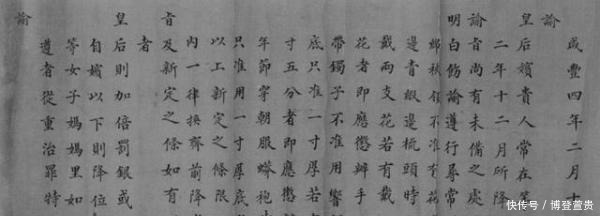 咸豐四年二月十
諭
皇后嬪貴人常在等
二年十二月所降
諭旨尚有未備之處
明白飭諭遵行尋常
不准有花
邊青緞邊梳頭時
戴兩支花若有戴
花者即應懲辦手
帶鐲子不准用響
底只准一寸厚若
寸五分者即應懲
年節穿朝服蟒袍
只准用一寸厚底
以上新定之條限
內一律換齊前降
旨及新定之條如有
者
皇后則加倍罰銀或
自嬪以下則降位
等女子媽媽里如
遵者從重治罪特
諭
快传号 / 博登萱贵